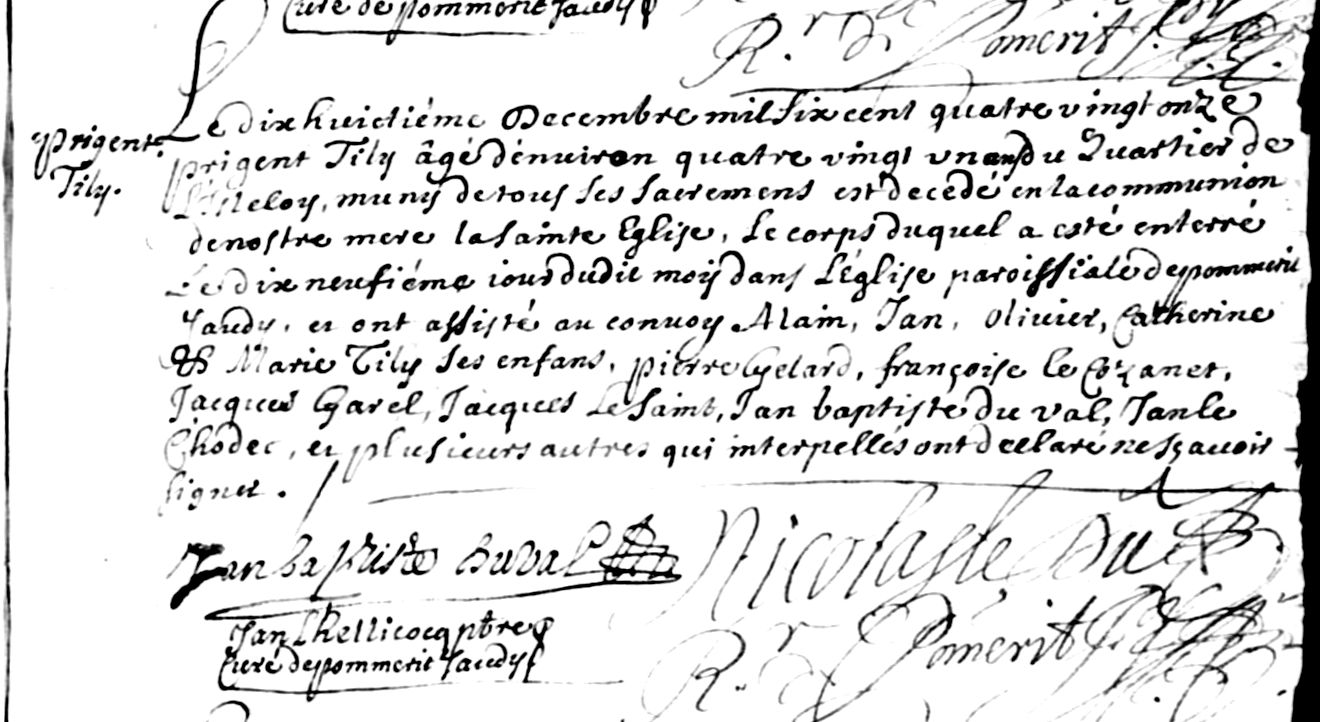 Curé de pommerit Jaudy
R.r de Pomerit J.
Le dix huictiéme Decembre mil six cent quatre vingt onze
Prigent Tily.
prigent Tily âgé d'enuiron quatre vingt vn ans du Quartier de
muny de tous ses sacremens est decedé en la communion
de nostre mere la sainte Eglise, Le corps duquel a esté enterré
Le dix neufiéme iour dudit moys dans L'Église paroissiale de pommerit
Jaudy, et ont assisté au conuoy Alain, Jan, Oliuier, Catherine
& Marie Tily ses enfans, pierre Gelard, françoise le Cozanet,
Jacques Garel, Jacques Le Saint, Jan baptiste du val, Jan le
Chodec, et plusieurs autres qui interpellés ont declaré ne sçauoir
signer.
Jan baptiste duval
Nicolas le Du
Jan L'hellicocq pbre
Curé de pommerit Jaudy
R.r de Pomerit J.